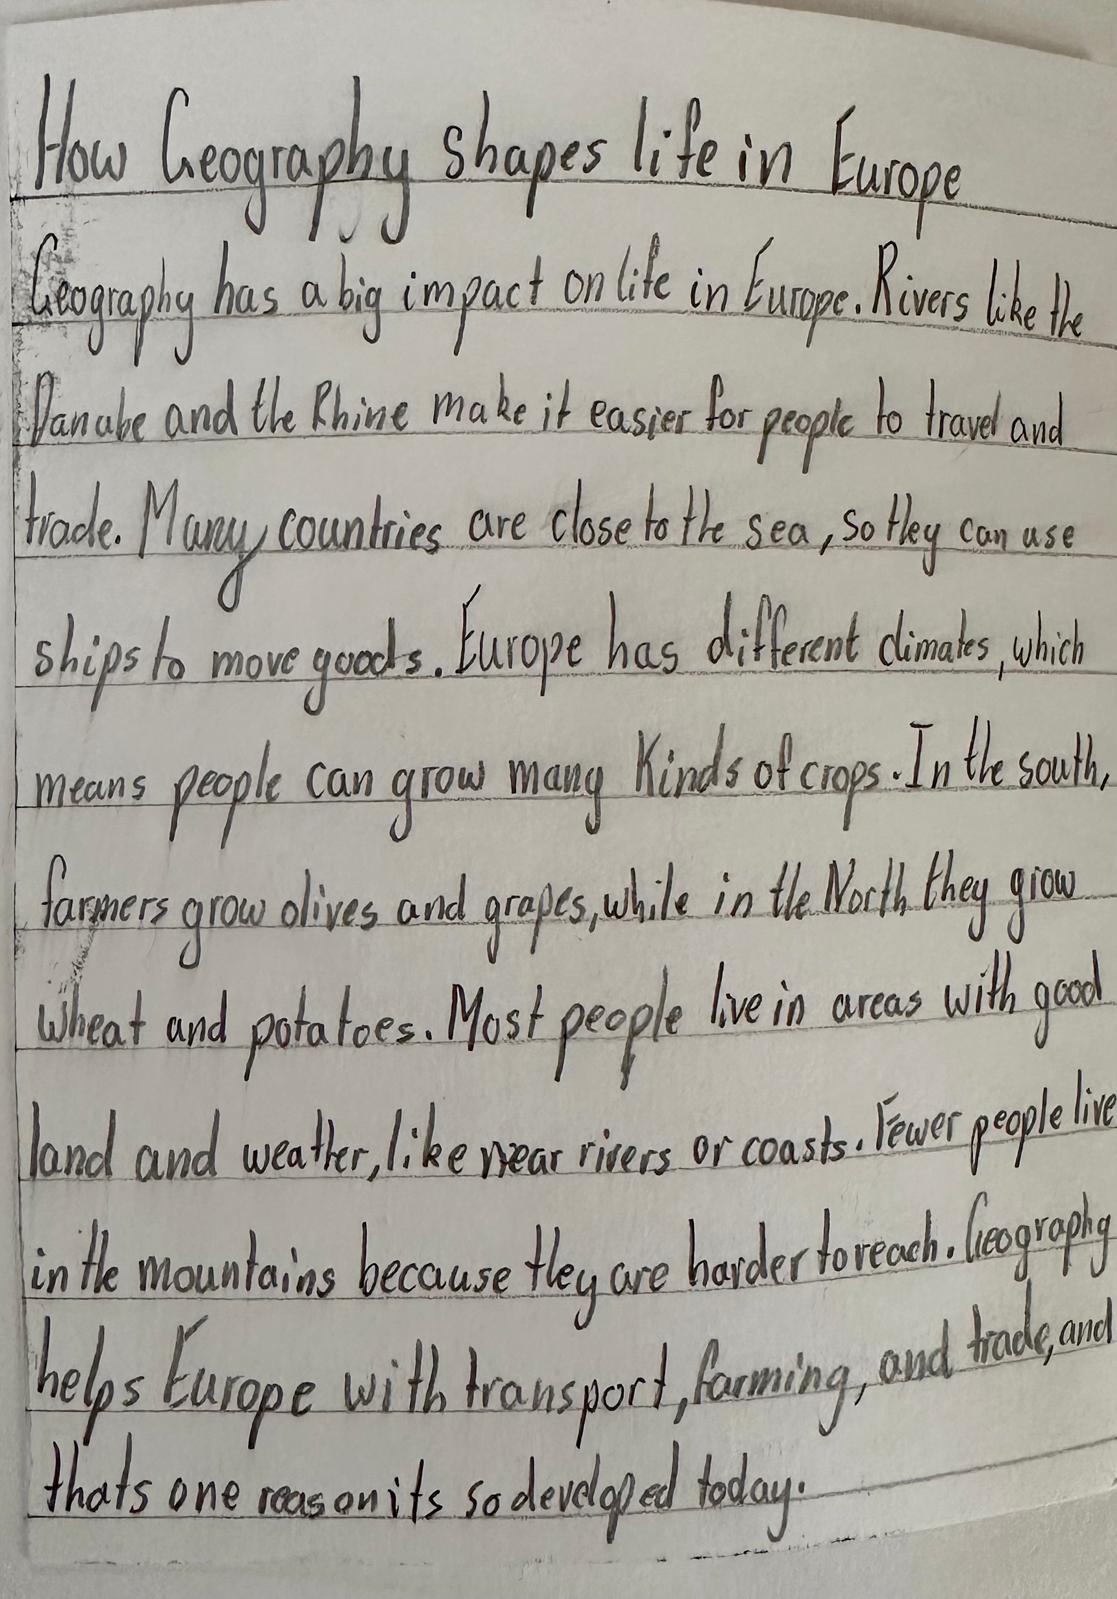 How Geography shapes life in Europe
Geography has a big impact on life in Europe. Rivers like the
Danube and the Rhine make it easier for people to travel and
trade. Many countries are close to the sea, so they can use
ships to move goods. Europe has different climates, which
means people can grow many kinds of crops. In the south,
farmers grow olives and grapes, while in the North they grow
wheat and potatoes. Most people live in areas with good
land and weather, like near rivers or coasts. Fewer people live
in the mountains because they are harder to reach. Geography
helps Europe with transport, farming, and trade, and
thats one reason its so developed today.